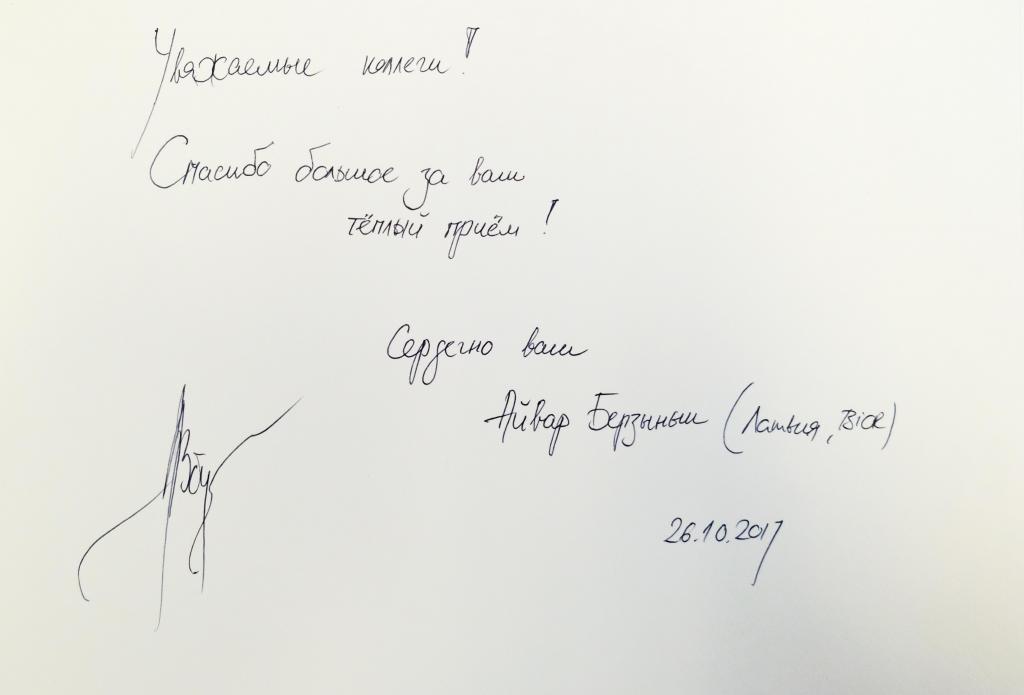 Уважаемые коллеги!
Спасибо большое за ваш
тёплый приём!
Сердечно ваш
Айвар Берзыньш (Латвия, BiOR)
26.10.2017